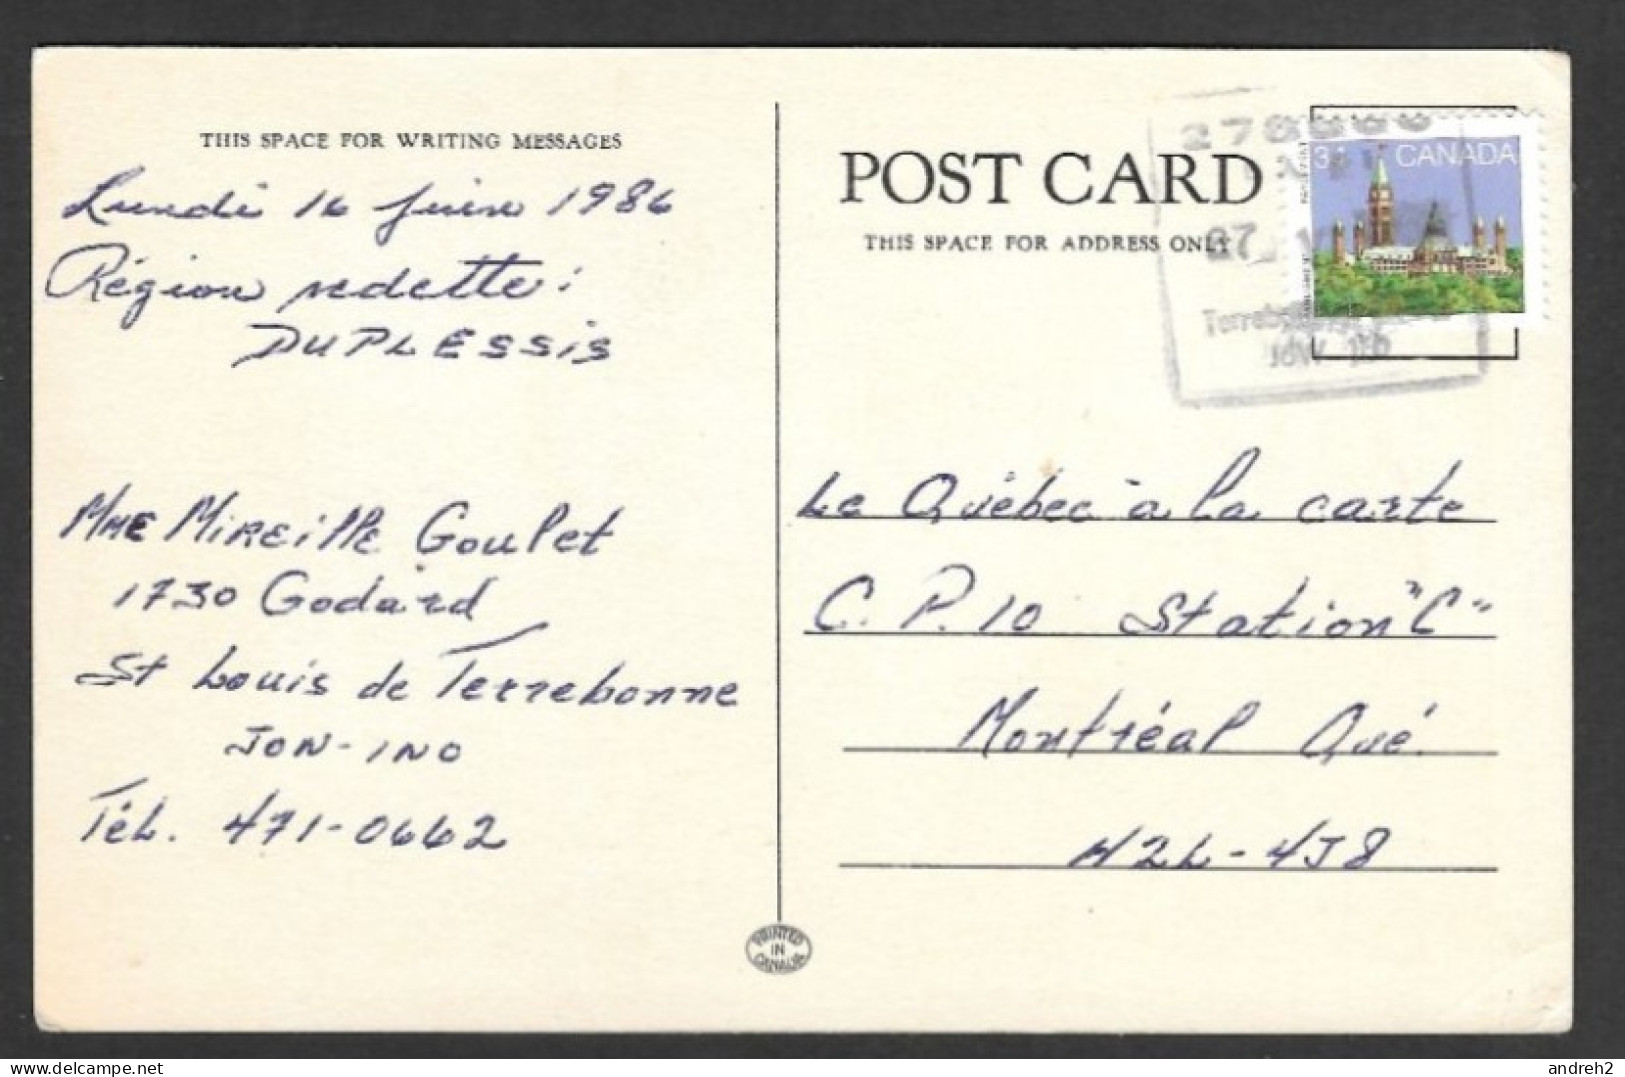 THIS SPACE FOR WRITING MESSAGES
Lundi 16 juin 1986
Région vedette :
DUPLESSIS
MME MIREILLE Goulet
1730 Godard
St Louis de Terrebonne
JON-1NO
Tél. 471-0662
POST CARD
THIS SPACE FOR ADDRESS ONLY
34 CANADA
Le Québec à la carte
C.P. 10 Station "C"
Montréal Qué.
H2L-4J8
PRINTED
IN
CANADA
delcampe.net
andreh2